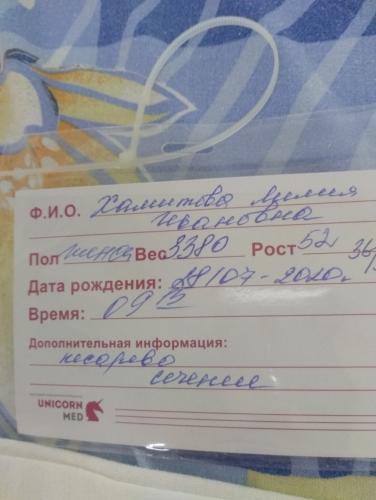 Ф.И.О. Хамитова Лилия
Ивановна
Пол женск Вес 3380 Рост 52 36/
Дата рождения: 28/07-2020г.
Время: 09 15
Дополнительная информация:
кесарево
сечение
UNICORN
MED